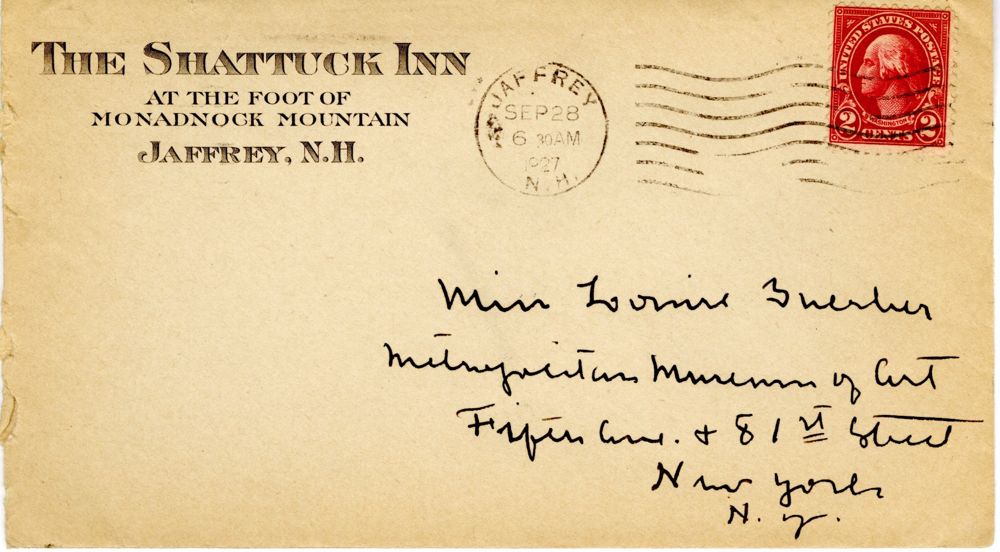 THE SHATTUCK INN
AT THE FOOT OF
MONADNOCK MOUNTAIN
JAFFREY, N.H.
JAFFREY
SEP 28
6 30 AM
1927
N.H.
UNITED STATES POSTAGE
WASHINGTON
2 CENTS 2
Miss Louise Burcher
Metropolitan Museum of Art
Fifth Ave. & 81st Street
New York
N. Y.